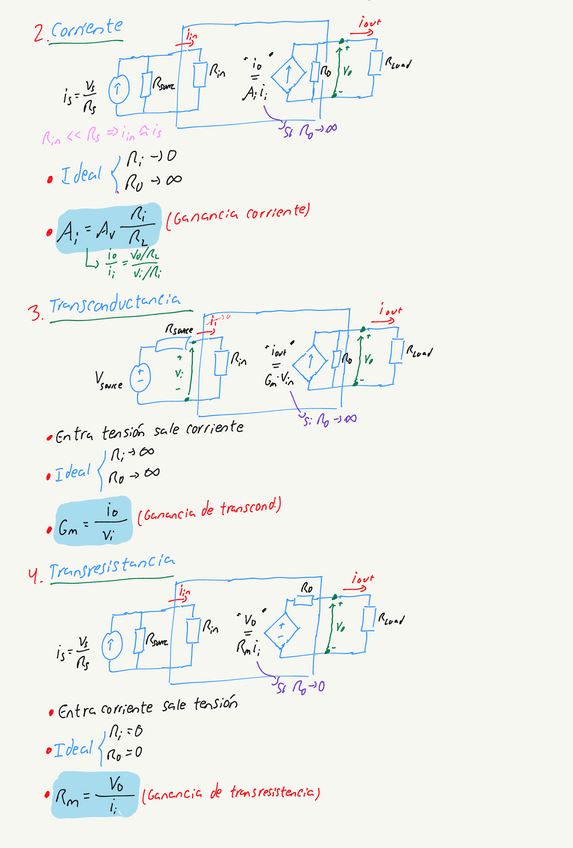 2. Corriente
iin
iout
is = Vs/Rs
Rsource
Rin
"io" = Ai ii
Ro
+
Vo
-
RLoad
Rin << Rs ⇒ iin ≈ is
Si Ro → ∞
• Ideal { Ri → 0
Ro → ∞
• Ai = Av Ri/RL (Ganancia corriente)
↳ io/ii = Vo/RL / Vi/Ri
3. Transconductancia
Rsource
ii → 0
iout
Vsource
+
-
+
Vi
-
Rin
"iout" = Gm·Vin
Ro
+
Vo
-
RLoad
Si Ro → ∞
• Entra tensión sale corriente
• Ideal { Ri → ∞
Ro → ∞
• Gm = io/vi (Ganancia de transcond.)
4. Transresistancia
iin
Ro
iout
is = Vs/Rs
Rsource
Rin
"Vo" = Rm ii
+
-
+
Vo
-
RLoad
Si Ro → 0
• Entra corriente sale tensión
• Ideal { Ri = 0
Ro = 0
• Rm = Vo/ii (Ganancia de transresistencia)